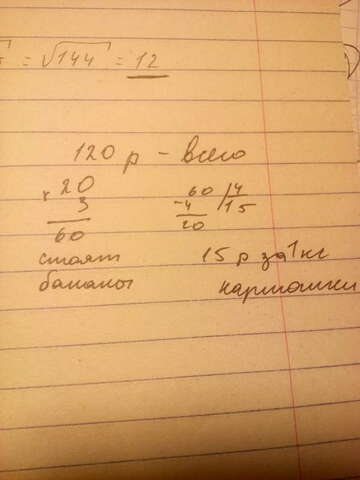 = √144 = 12
120 р – всего
× 20 60 | 4
3 – 4 | 15
60 20
стоят 15 р за 1 кг
бананы картошки